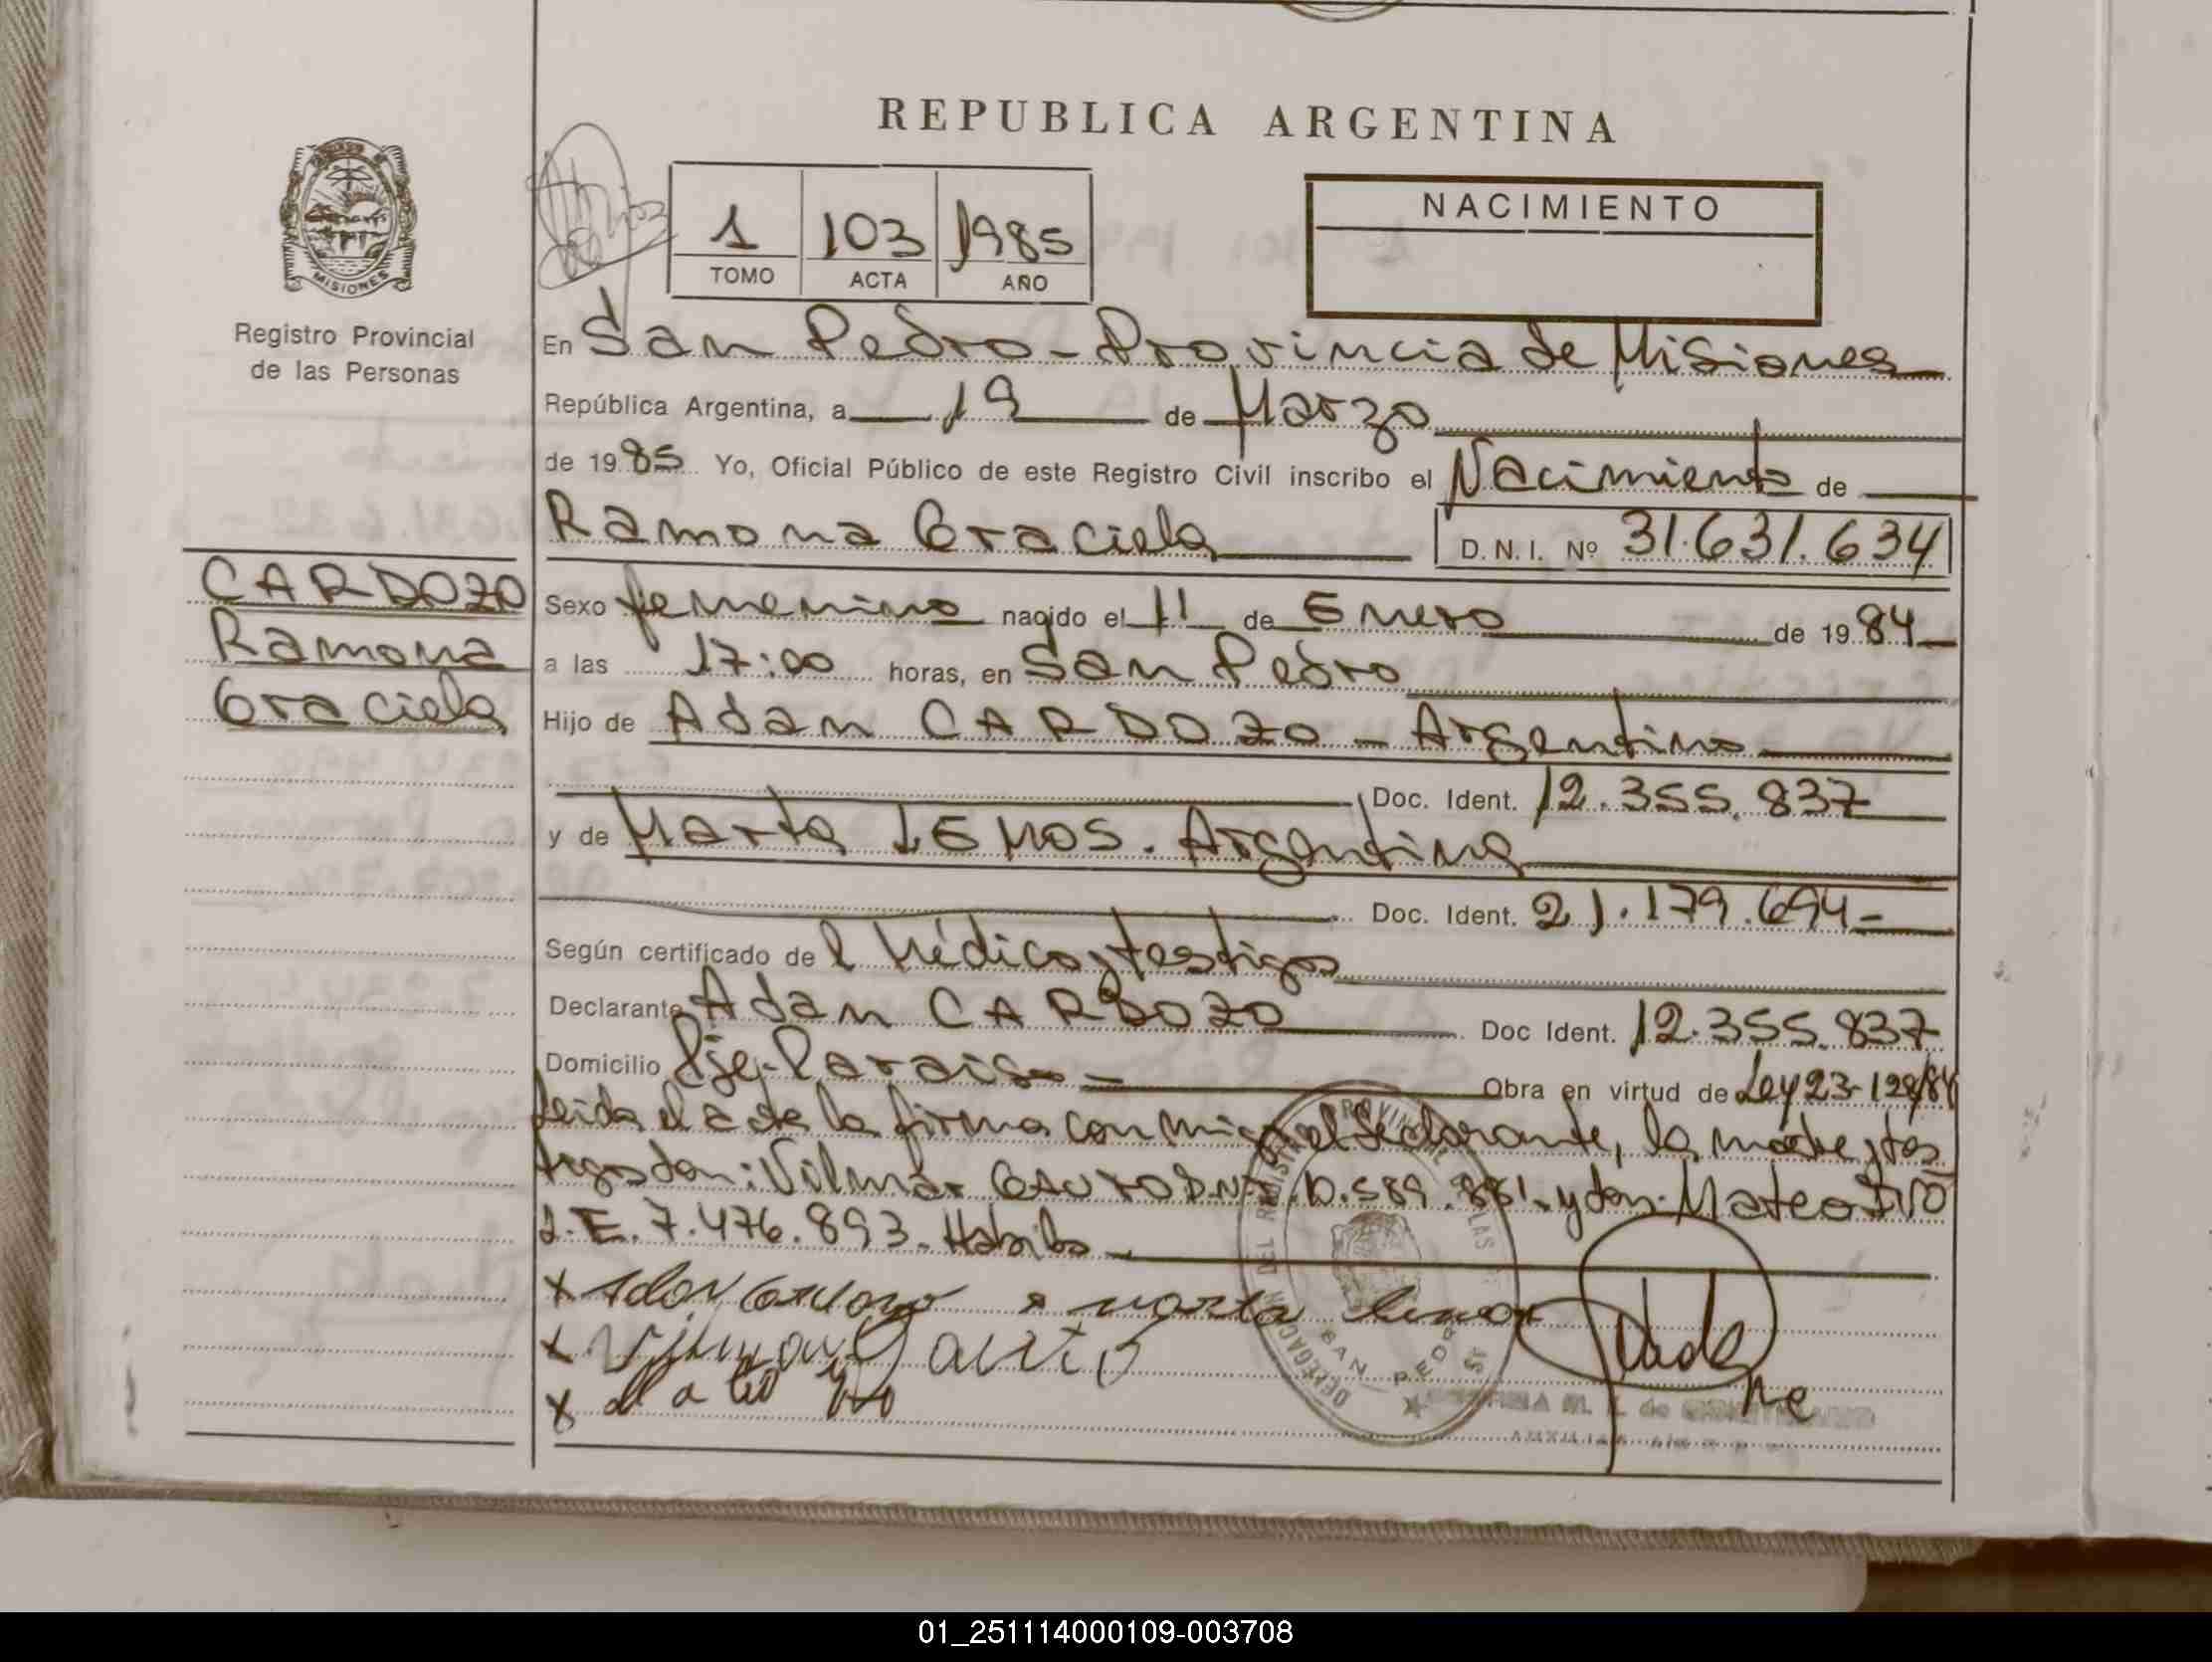 REPUBLICA ARGENTINA
NACIMIENTO
1 103 1985
TOMO ACTA AÑO
MISIONES
Registro Provincial
de las Personas
CARDOZO
Ramona
Graciela
En San Pedro - Provincia de Misiones
República Argentina, a 19 de Marzo
de 1985 Yo, Oficial Público de este Registro Civil inscribo el Nacimiento de
Ramona Graciela D.N.I. Nº 31.631.634
Sexo femenino nacido el 11 de Enero de 1984
a las 17:00 horas, en San Pedro
Hijo de Adan CARDOZO - Argentino
Doc. Ident. 12.355.837
y de Marta LEMOS. Argentina
Doc. Ident. 21.179.694-
Según certificado del Médico y testigos
Declarante Adan CARDOZO Doc Ident. 12.355.837
Domicilio Pje. Paraiso - Obra en virtud de Ley 23-128/84
Leida el acta la firma conmigo el declarante, la madre y tes
tigos don: Vilmar GAUTO D.N.I. 10.589.881. y don: Mateo IVO
L.E. 7.476.893. Habiles
x Adan Cardozo x marta lemos
x Vilmar Gauto
x Mateo Ivo
DELEGACION DEL REGISTRO PROVINCIAL DE LAS
SAN PEDRO
01_251114000109-003708